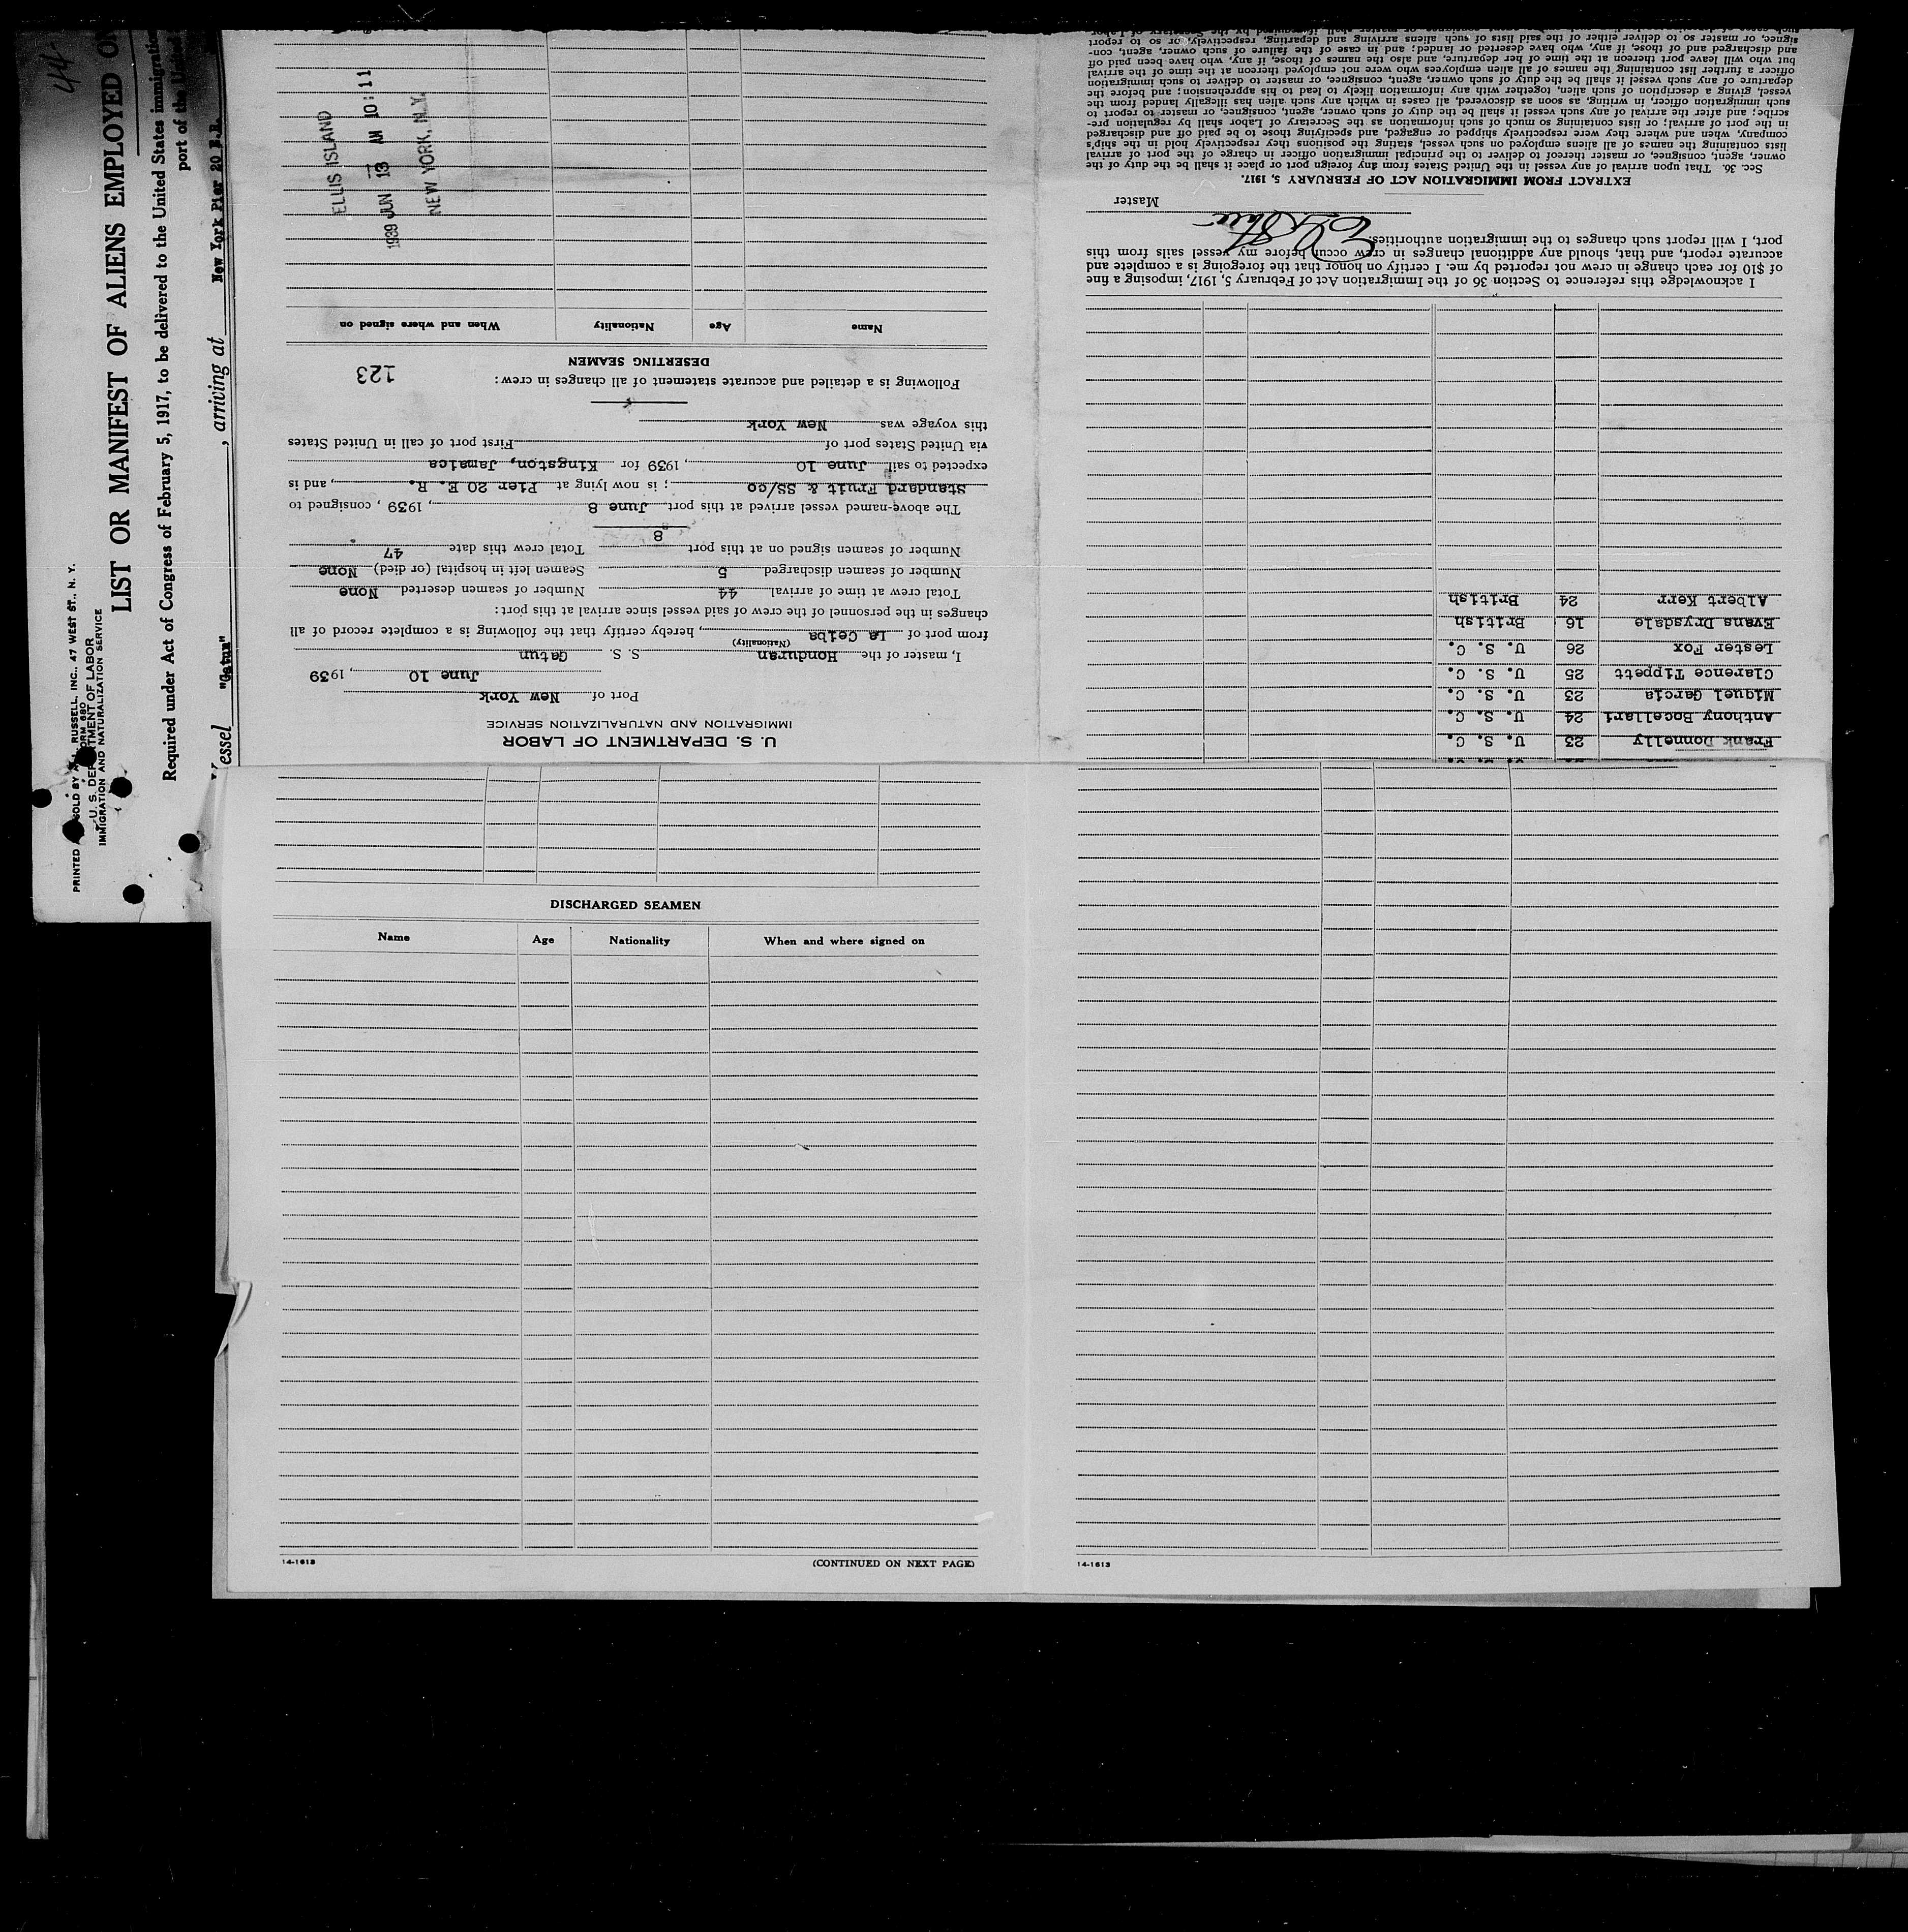 44-
PRINTED
SOLD BY
RUSSELL, INC., 47 WEST ST., N. Y.
FORM 680
U. S. DEPARTMENT OF LABOR
IMMIGRATION AND NATURALIZATION SERVICE
LIST OR MANIFEST OF ALIENS EMPLOYED ON
Required under Act of Congress of February 5, 1917, to be delivered to the United States immigratio
port of the United
Vessel "Gatun" , arriving at New York Pier 20 E.R.
U. S. DEPARTMENT OF LABOR
IMMIGRATION AND NATURALIZATION SERVICE
Port of New York
June 10 , 1939
I, master of the Honduran S. S. Gatun
(Nationality)
from port of La Ceiba , hereby certify that the following is a complete record of all
changes in the personnel of the crew of said vessel since arrival at this port:
Total crew at time of arrival 44 Number of seamen deserted None
Number of seamen discharged 5 Seamen left in hospital (or died) None
Number of seamen signed on at this port 8 Total crew this date 47
The above-named vessel arrived at this port June 8 , 1939 , consigned to
Standard Fruit & SS/co ; is now lying at Pier 20 E. R. , and is
expected to sail June 10 , 1939 for Kingston, Jamaica
via United States port of First port of call in United States
this voyage was New York
Following is a detailed and accurate statement of all changes in crew:
123
DESERTING SEAMEN
Name Age Nationality When and where signed on
ELLIS ISLAND
1939 JUN 13 AM 10:11
NEW YORK, N.Y.
Frank Donnelly 23 U. S. C.
Anthony Bocellari 24 U. S. C.
Miquel Garcia 23 U. S. C.
Clarence Tippett 25 U. S. C.
Lester Fox 26 U. S. C.
Evans Drysdale 16 British
Albert Kerr 24 British
I acknowledge this reference to Section 36 of the Immigration Act of February 5, 1917, imposing a fine
of $10 for each change in crew not reported by me. I certify on honor that the foregoing is a complete and
accurate report, and that, should any additional changes in crew occur before my vessel sails from this
port, I will report such changes to the immigration authorities.
Master
EXTRACT FROM IMMIGRATION ACT OF FEBRUARY 5, 1917.
Sec. 36. That upon arrival of any vessel in the United States from any foreign port or place it shall be the duty of the
owner, agent, consignee, or master thereof to deliver to the principal immigration officer in charge of the port of arrival
lists containing the names of all aliens employed on such vessel, stating the positions they respectively hold in the ship's
company, when and where they were respectively shipped or engaged, and specifying those to be paid off and discharged
in the port of arrival; or lists containing so much of such information as the Secretary of Labor shall by regulation pre-
scribe; and after the arrival of any such vessel it shall be the duty of such owner, agent, consignee, or master to report to
such immigration officer, in writing, as soon as discovered, all cases in which any such alien has illegally landed from the
vessel, giving a description of such alien, together with any information likely to lead to his apprehension; and before the
departure of any such vessel it shall be the duty of such owner, agent, consignee, or master to deliver to such immigration
officer a further list containing the names of all alien employees who were not employed thereon at the time of the arrival
but who will leave port thereon at the time of her departure, and also the names of those, if any, who have been paid off
and discharged and of those, if any, who have deserted or landed; and in case of the failure of such owner, agent, con-
signee, or master so to deliver either of the said lists of such aliens arriving and departing, respectively, or so to report
DISCHARGED SEAMEN
Name Age Nationality When and where signed on
14-1613 (CONTINUED ON NEXT PAGE)
14-1613